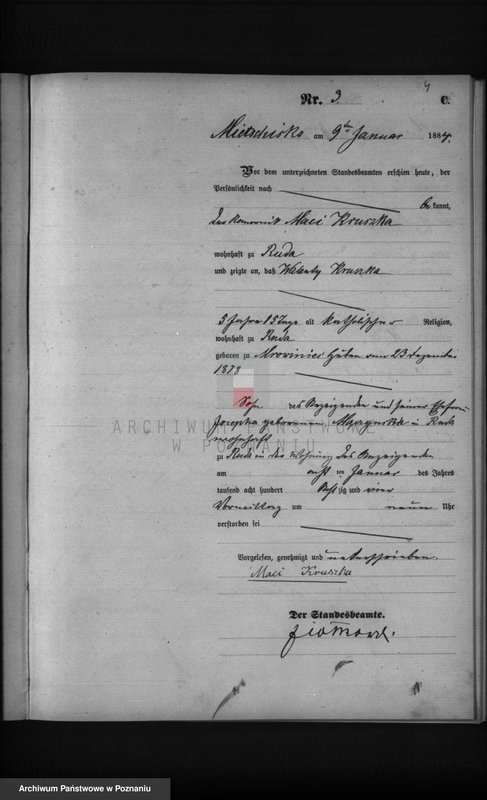 4
Nr. 3 C.
Mietschisko am 9ten Januar 1884.
Vor dem unterzeichneten Standesbeamten erschien heute, der
Persönlichkeit nach
be kannt,
der Komornik Maci Kruszka
wohnhaft zu Ruda
und zeigte an, daß Walenty Kruszka
5 Jahre 15 Tage alt katholischer Religion,
wohnhaft zu Ruda
geboren zu Hüben am 23 Dezember
1878
Sohn des Anzeigenden und seiner Ehefrau
Josepha geborenen in Ruda
wohnhaft
zu Ruda in der Wohnung des Anzeigenden
am acht ten Januar des Jahres
tausend acht hundert Acht zig und vier
Vormittag um neun Uhr
verstorben sei
Vorgelesen, genehmigt und unterschrieben.
Maci Kruszka
Der Standesbeamte.
ARCHIWUM PAŃSTWOWE
W POZNANIU
Archiwum Państwowe w Poznaniu